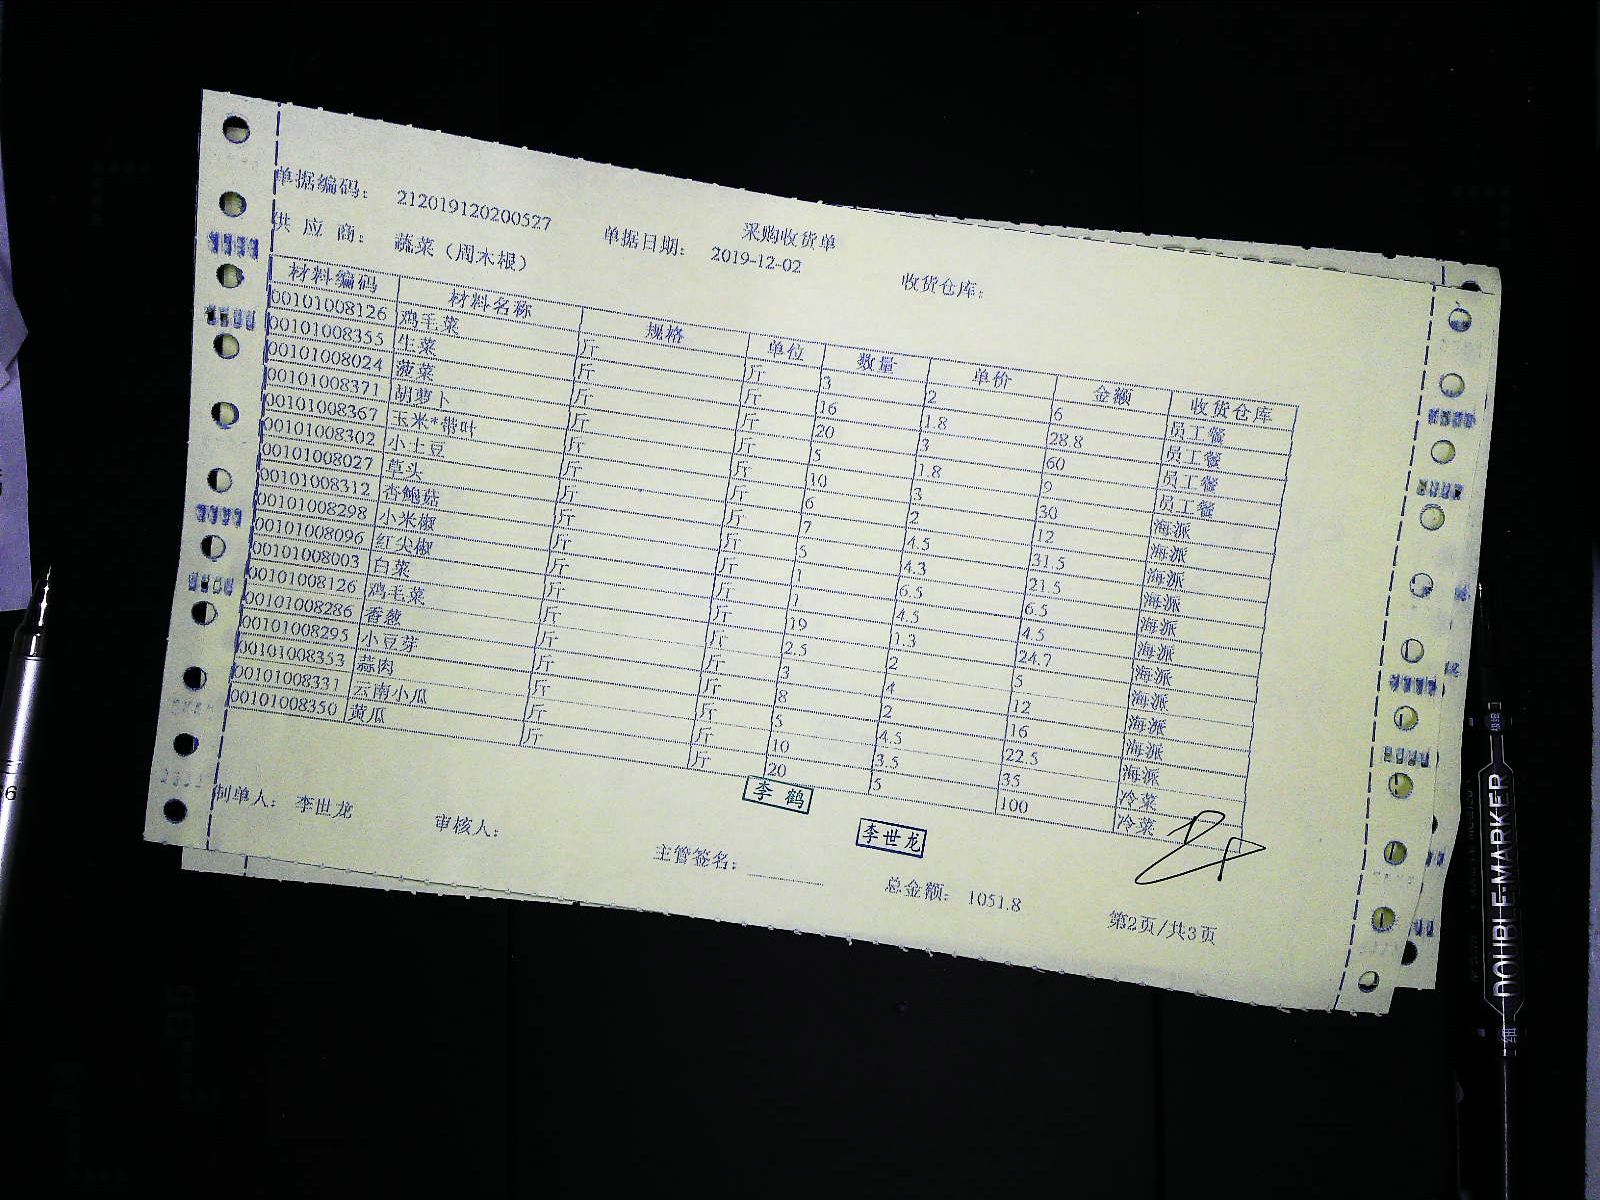 采购收货单
单据编码: 212019120200527 单据日期: 2019-12-02 收货仓库:
供 应 商: 蔬菜（周木根）
材料编码 材料名称 规格 单位 数量 单价 金额 收货仓库
00101008126 鸡毛菜 斤 斤 3 2 6 员工餐
00101008355 生菜 斤 斤 16 1.8 28.8 员工餐
00101008024 菠菜 斤 斤 20 3 60 员工餐
00101008371 胡萝卜 斤 斤 5 1.8 9 员工餐
00101008367 玉米*带叶 斤 斤 10 3 30 海派
00101008302 小土豆 斤 斤 6 2 12 海派
00101008027 草头 斤 斤 7 4.5 31.5 海派
00101008312 杏鲍菇 斤 斤 5 4.3 21.5 海派
00101008298 小米椒 斤 斤 1 6.5 6.5 海派
00101008096 红尖椒 斤 斤 1 4.5 4.5 海派
00101008003 白菜 斤 斤 19 1.3 24.7 海派
00101008126 鸡毛菜 斤 斤 2.5 2 5 海派
00101008286 香葱 斤 斤 3 4 12 海派
00101008295 小豆芽 斤 斤 8 2 16 海派
00101008353 蒜肉 斤 斤 5 4.5 22.5 海派
00101008331 云南小瓜 斤 斤 10 3.5 35 冷菜
00101008350 黄瓜 斤 斤 20 5 100 冷菜
李 鹤
李世龙
制单人: 李世龙 审核人: 主管签名: 总金额: 1051.8 第2页/共3页
DOUBLE-MARKER